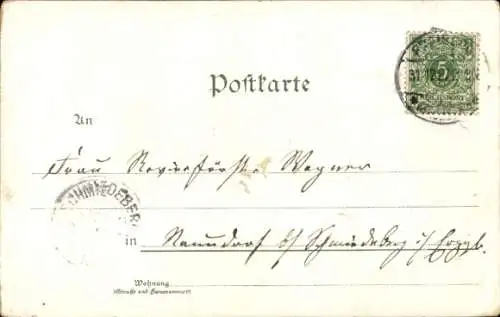 Postkarte
5
31.12.
An
Frau Revierförster Wagner
SCHMIEDEBERG
in Naundorf b/ Schmiedeberg i/ Erzgb.
Wohnung
(Straße und Hausnummer)